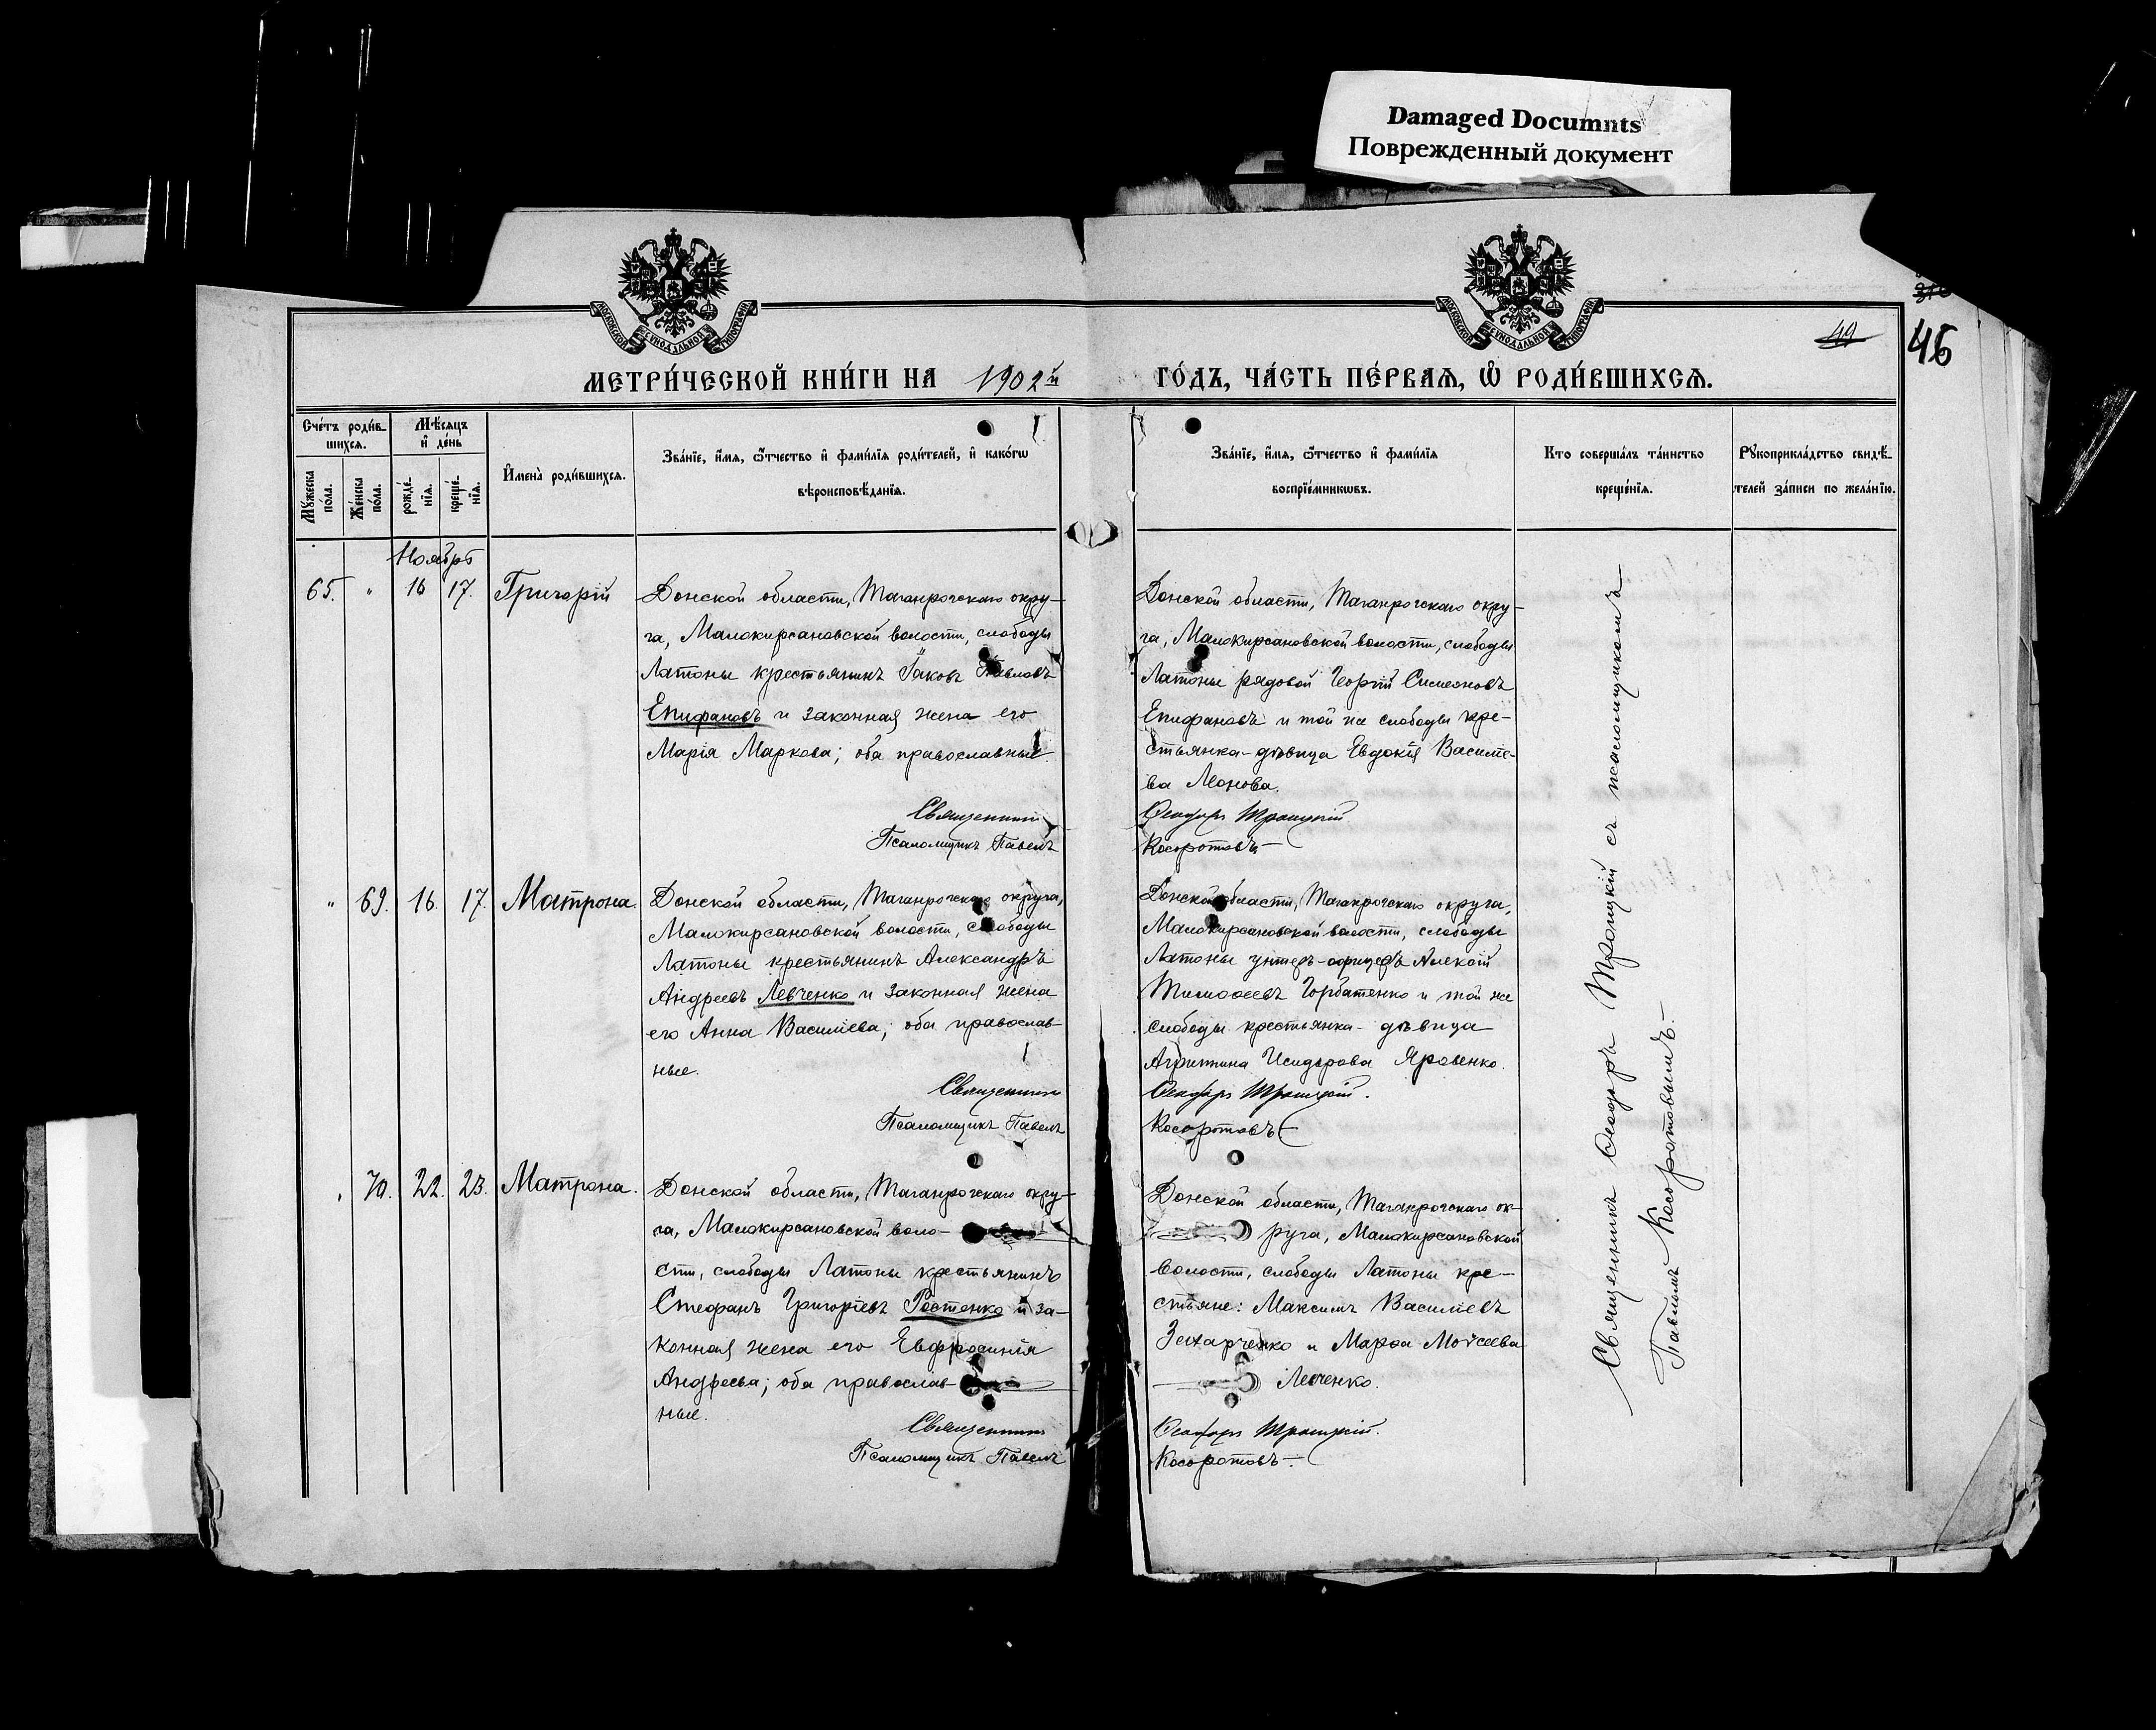 Damaged Documnts
Поврежденный документ
МОСКОВСКОЙ СѴНОДАЛЬНОЙ ТИПОГРАФІИ
МОСКОВСКОЙ СѴНОДАЛЬНОЙ ТИПОГРАФІИ
49
46
МЕТРИ́ЧЕСКОЙ КНИ́ГИ НА 1902й ГО́ДЪ, ЧА́СТЬ ПЕ́РВАЯ, Ѡ҆ РОДИ́ВШИХСЯ.
Сче́тъ роди́в-
шихся.
Мꙋжеска
по́ла.
Же́нска
по́ла.
Мѣ́сяцъ
и҆ де́нь
рожде́-
нїя.
креще́-
нїя.
И҆мена̀ роди́вшихся.
Зва́нїе, и҆́мя, ѻ҆́тчество и҆ фами́лїя роди́телей, и҆ како́гѡ
вѣроисповѣ́данїя.
Зва́нїе, и҆́мя, ѻ҆́тчество и҆ фами́лїя
воспрїе́мникѡвъ.
Кто соверша́лъ та́инство
креще́нїя.
Рꙋкоприкла́дство свидѣ́-
телей за́писи по жела́нїю.
Ноябрь
65. " 16 17. Григорій
Донской области, Таганрогскаго окру-
га, Малокирсановской волости, слободы
Латоны крестьянинъ Іаковъ Павловъ
Епифановъ и законная жена его
Марія Маркова; оба православные.
Священникъ
Псаломщикъ Павелъ
Донской области, Таганрогскаго окру-
га, Малокирсановской волости, слободы
Латоны рядовой Георгій Симеоновъ
Епифановъ и той же слободы кре-
стьянка-дѣвица Евдокія Василіе-
ва Леонова.
Ѳеодоръ Троицкій
Косоротовъ
" 69. 16. 17. Матрона.
Донской области, Таганрогскаго округа,
Малокирсановской волости, слободы
Латоны крестьянинъ Александръ
Андреевъ Левченко и законная жена
его Анна Василіева; оба православ-
ные.
Священникъ
Псаломщикъ Павелъ
Донской области, Таганрогскаго округа,
Малокирсановской волости, слободы
Латоны унтеръ-офицеръ Алексій
Тимоѳеевъ Горбатенко и той же
слободы крестьянка-дѣвица
Агриппина Исидорова Яровенко.
Ѳеодоръ Троицкій.
Косоротовъ
" 70. 22. 23. Матрона.
Донской области, Таганрогскаго окру-
га, Малокирсановской воло-
сти, слободы Латоны крестьянинъ
Стефанъ Григоріевъ Ростенко и за-
конная жена его Евфросинія
Андреева; оба православ-
ные.
Священникъ
Псаломщикъ Павелъ
Донской области, Таганрогскаго ок-
руга, Малокирсановской
волости, слободы Латоны кре-
стьяне: Максимъ Василіевъ
Захарченко и Марѳа Моѵсеева
Левченко.
Ѳеодоръ Троицкій.
Косоротовъ
Священникъ Ѳеодоръ Троицкій съ псаломщикомъ
Павломъ Косоротовымъ